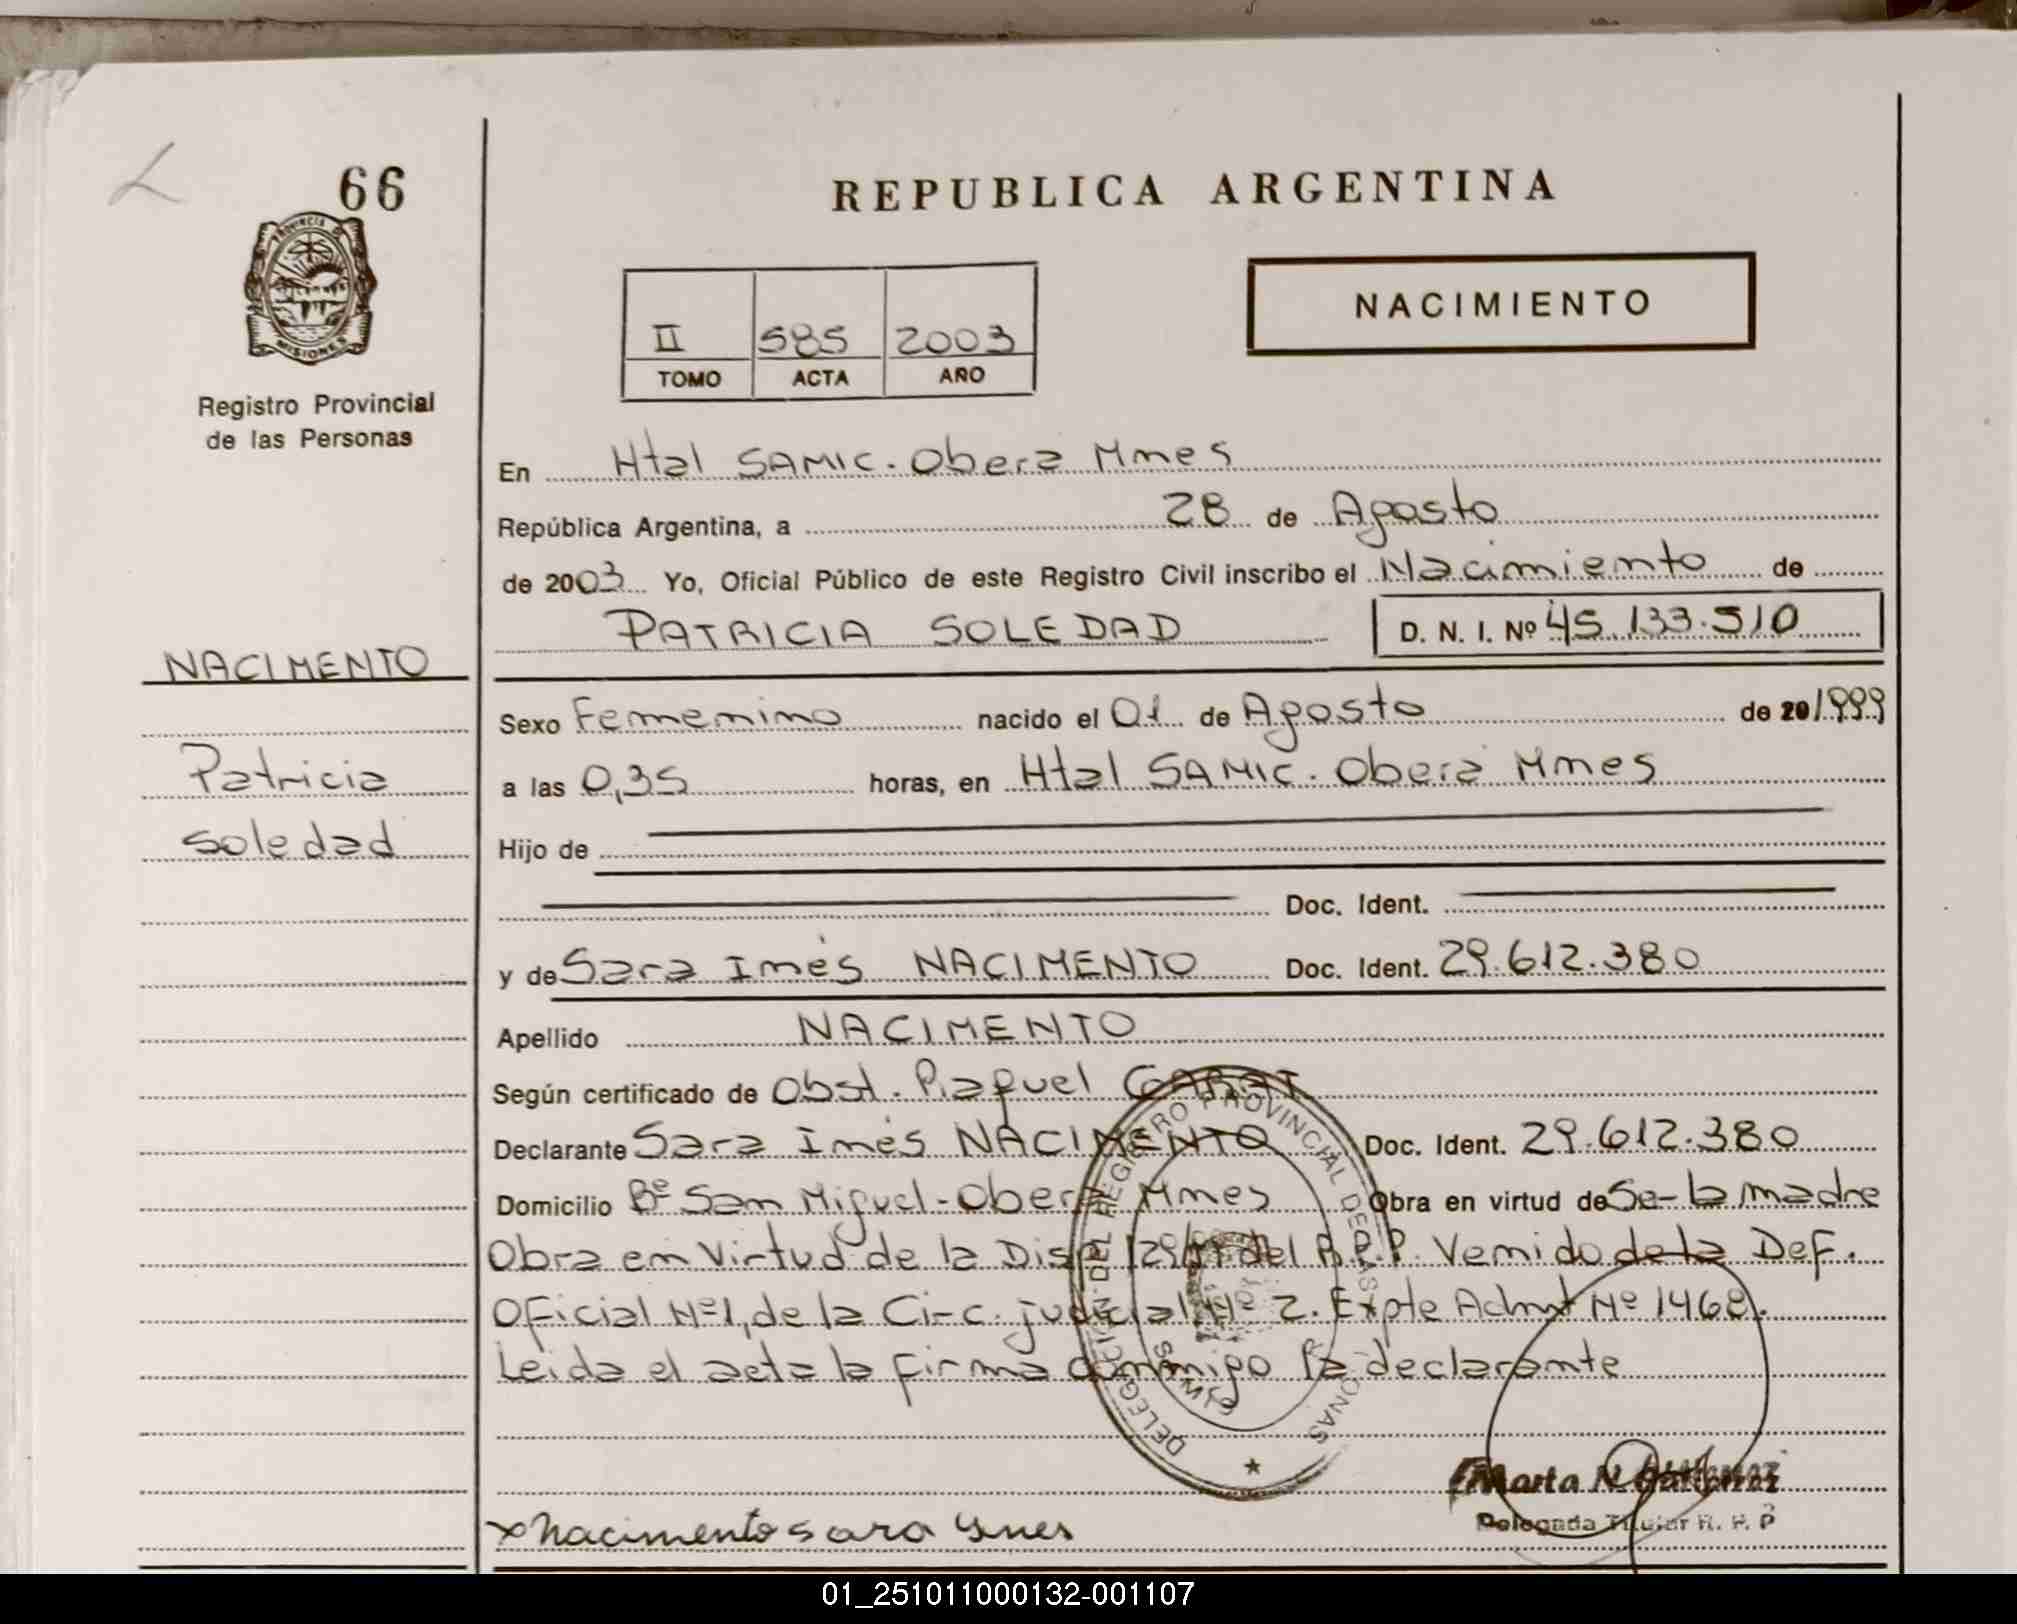 66
PROVINCIA DE
MISIONES
Registro Provincial
de las Personas
REPUBLICA ARGENTINA
NACIMIENTO
II 585 2003
TOMO ACTA AÑO
En Htal SAMIC. Oberá Mnes
República Argentina, a 28 de Agosto
de 2003 Yo, Oficial Público de este Registro Civil inscribo el Nacimiento de
PATRICIA SOLEDAD D. N. I. Nº 45.133.510
NACIMENTO
Patricia
Soledad
Sexo Femenino nacido el 01 de Agosto de 20 1999
a las 0,35 horas, en Htal SAMIC. Oberá Mnes
Hijo de
Doc. Ident.
y de Sara Inés NACIMENTO Doc. Ident. 29.612.380
Apellido NACIMENTO
Según certificado de Obst. Raquel GARAT
Declarante Sara Inés NACIMENTO Doc. Ident. 29.612.380
Domicilio Bº San Miguel-Oberá Mnes Obra en virtud de Se- la madre
Obra en Virtud de la Disp. del R.P.P. Venido de la Def.
Oficial Nº1, de la Circ. judicial Nº 2. Expte Admt Nº 1468.
Leida el acta la firma conmigo la declarante
DELEGACION DEL REGISTRO PROVINCIAL DE LAS PERSONAS
Marta N.
Delegada Titular R. P. P
x Nacimento Sara Ynes
01_251011000132-001107